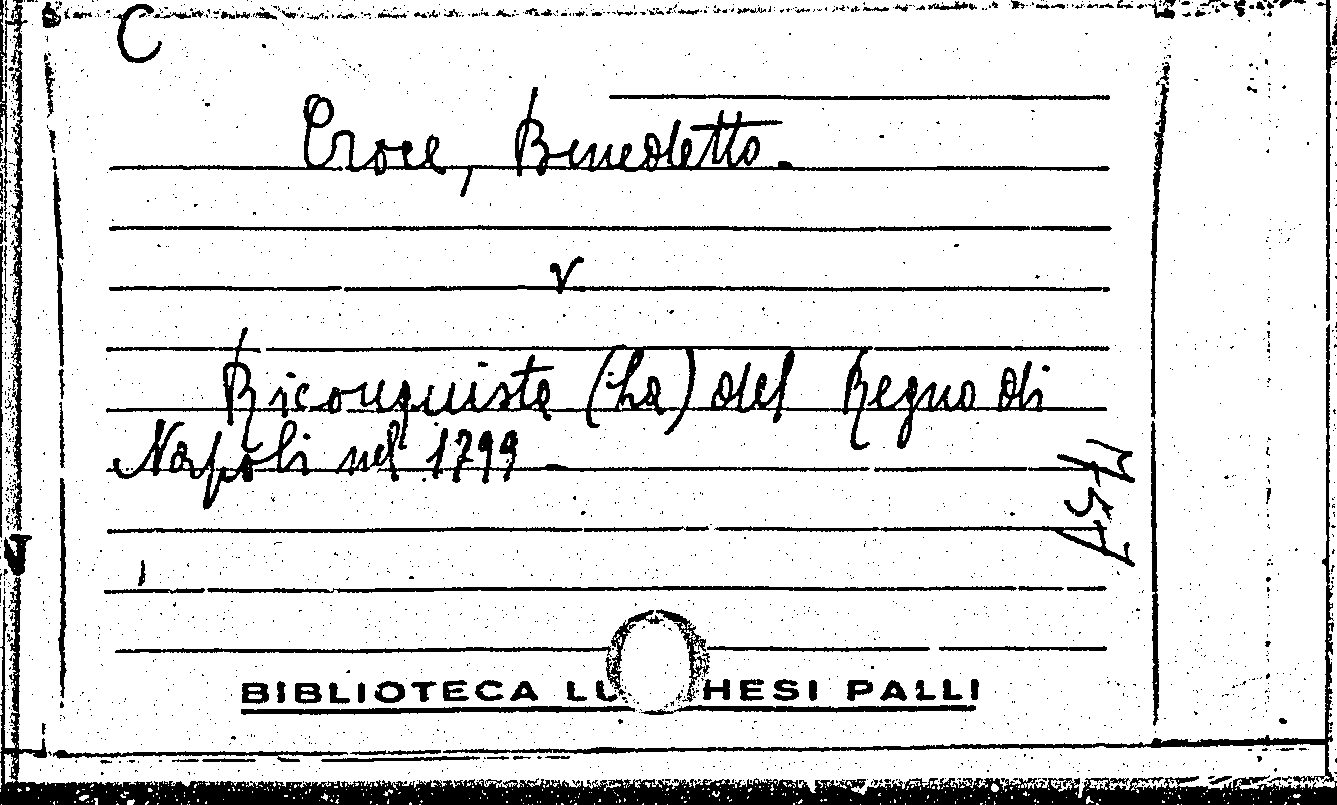 C
Croce, Benedetto.
V
Riconquista (La) del Regno di
Napoli nel 1799
BIBLIOTECA LU HESI PALLI